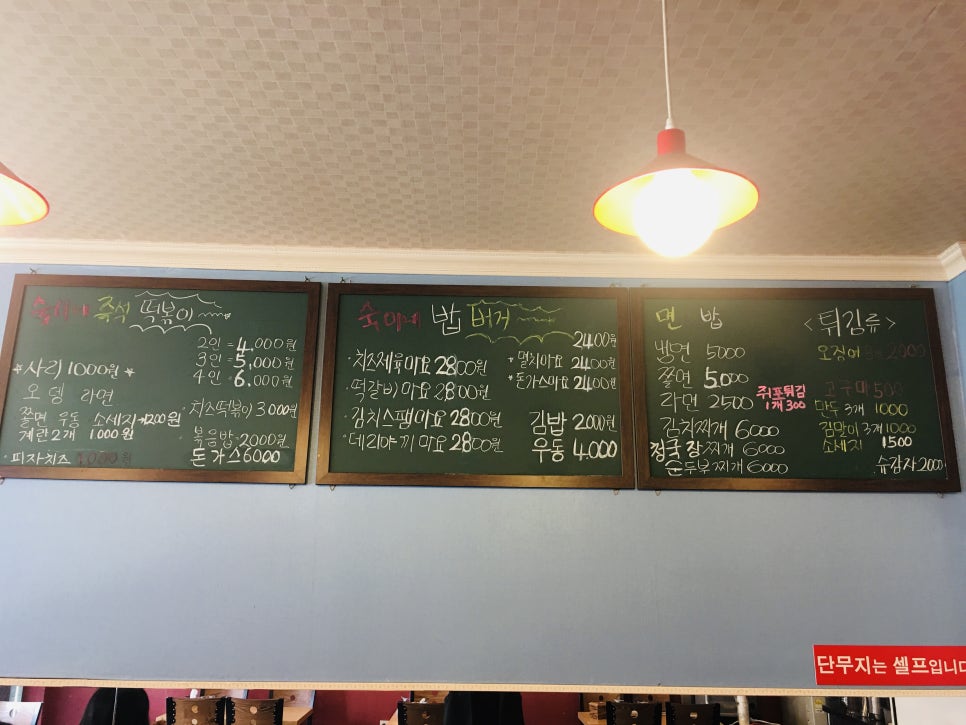 즉석 떡볶이
2인 = 4,000원
3인 = 5,000원
4인 = 6,000원
*사리 1000원*
오뎅 라면
쫄면 우동 소세지 1200원
계란2개 1000원
·피자치즈
·치즈떡볶이 3000원
·볶음밥 2000원
돈가스 6000
숙이네 밥버거
2400원
·치즈제육마요 2800원
·떡갈비마요 2800원
·김치스팸마요 2800원
·데리야끼마요 2800원
*멸치마요 2400원
*돈가스마요 2400원
김밥 2000원
우동 4.000
면 밥
냉면 5000
쫄면 5000
라면 2500
김치찌개 6000
청국장찌개 6000
순두부찌개 6000
쥐포튀김
1개 300
<튀김류>
오징어 2000
고구마 500
만두 3개 1000
김말이 3개 1000
소세지 1500
슈감자 2000
단무지는 셀프입니다